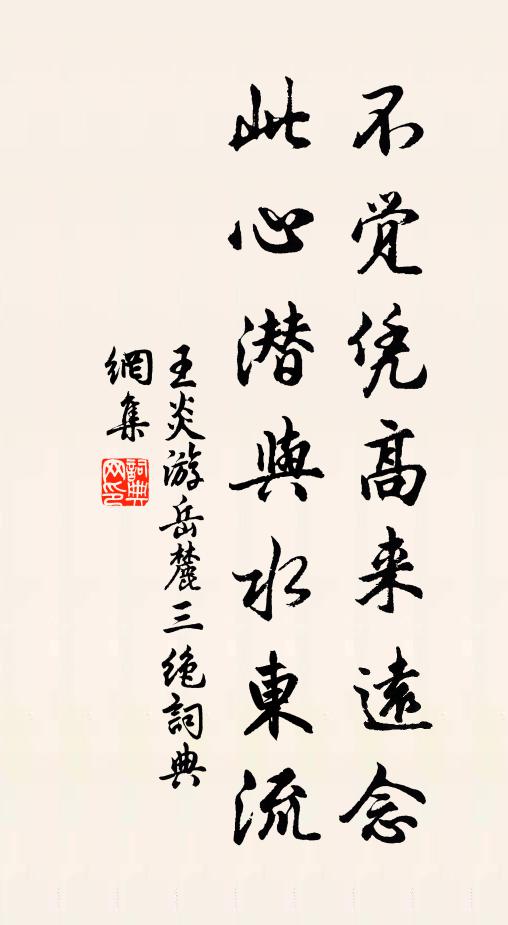 不觉凭高来遠念
此心潜與水東流
王炎游岳麓三绝詞典
網集
詞典
网印